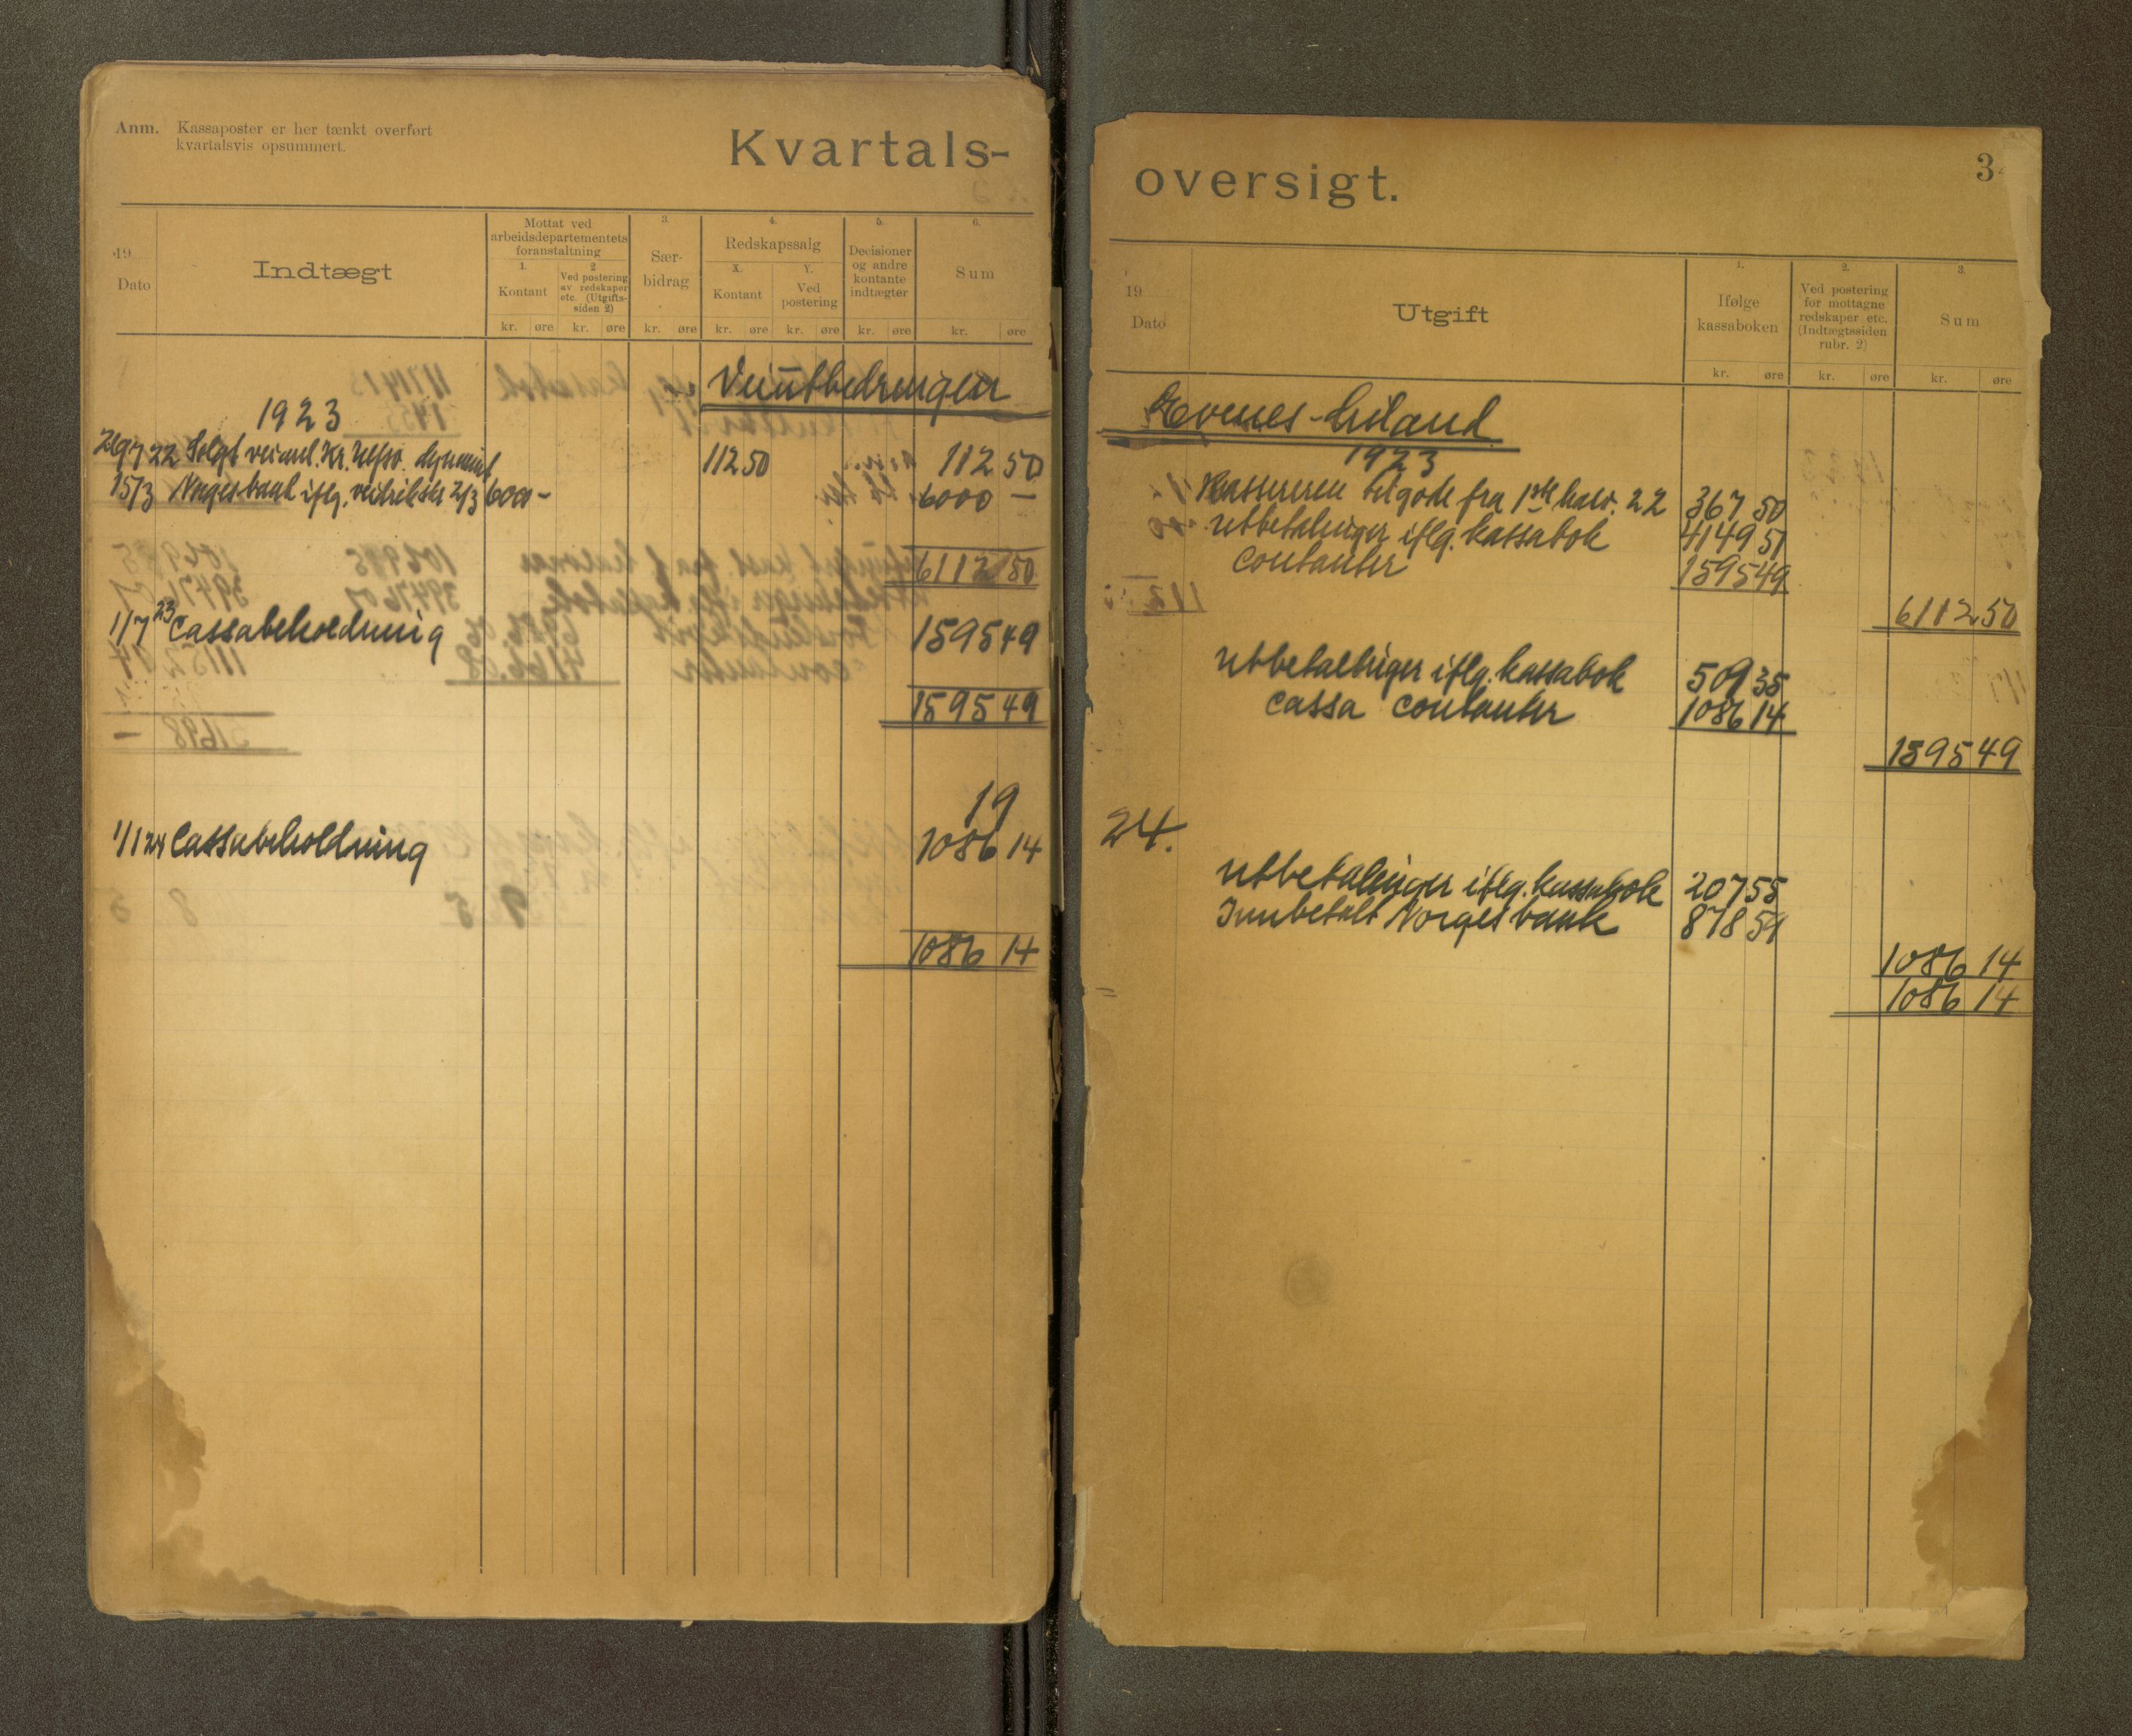 Anm. Kassaposter er her tænkt overført
kvartalsvis opsummert.
Kvartals-
19
Dato
Indtægt
Mottat ved
arbeidsdepartementets
foranstaltning
1.
Kontant
2
Ved postering
av redskaper
etc. (Utgifts-
siden 2)
3.
Sær-
bidrag
4.
Redskapssalg
X.
Kontant
Y.
Ved
postering
5.
Decisioner
og andre
kontante
indtægter
6.
Sum
kr. øre kr. øre kr. øre kr. øre kr. øre kr. øre kr. øre
Veiutbedringen
1923
22 Solgt 112 50 112 50
15/3 Norges bank iflg. 2/3 6000 - 6000 -
6112 50
1/7 23 Cassabeholdning 1595 49
1595 49
19
1/1 24 Cassabeholdning 1086 14
1086 14
oversigt.
3
19
Dato
Utgift
1.
Ifølge
kassaboken
2.
Ved postering
for mottagne
redskaper etc.
(Indtægtssiden
rubr. 2)
3.
Sum
kr. øre kr. øre kr. øre
Evenes-
1923
Kassereren tilgode fra 1ste halv. 22 367 50
Utbetalinger iflg. kassabok 4149 51
Contanter 1595 49
6112 50
Utbetalinger iflg. kassabok 509 35
Cassa Contanter 1086 14
1595 49
24.
Utbetalinger iflg. kassabok 207 55
Innbetalt Norges bank 878 59
1086 14
1086 14